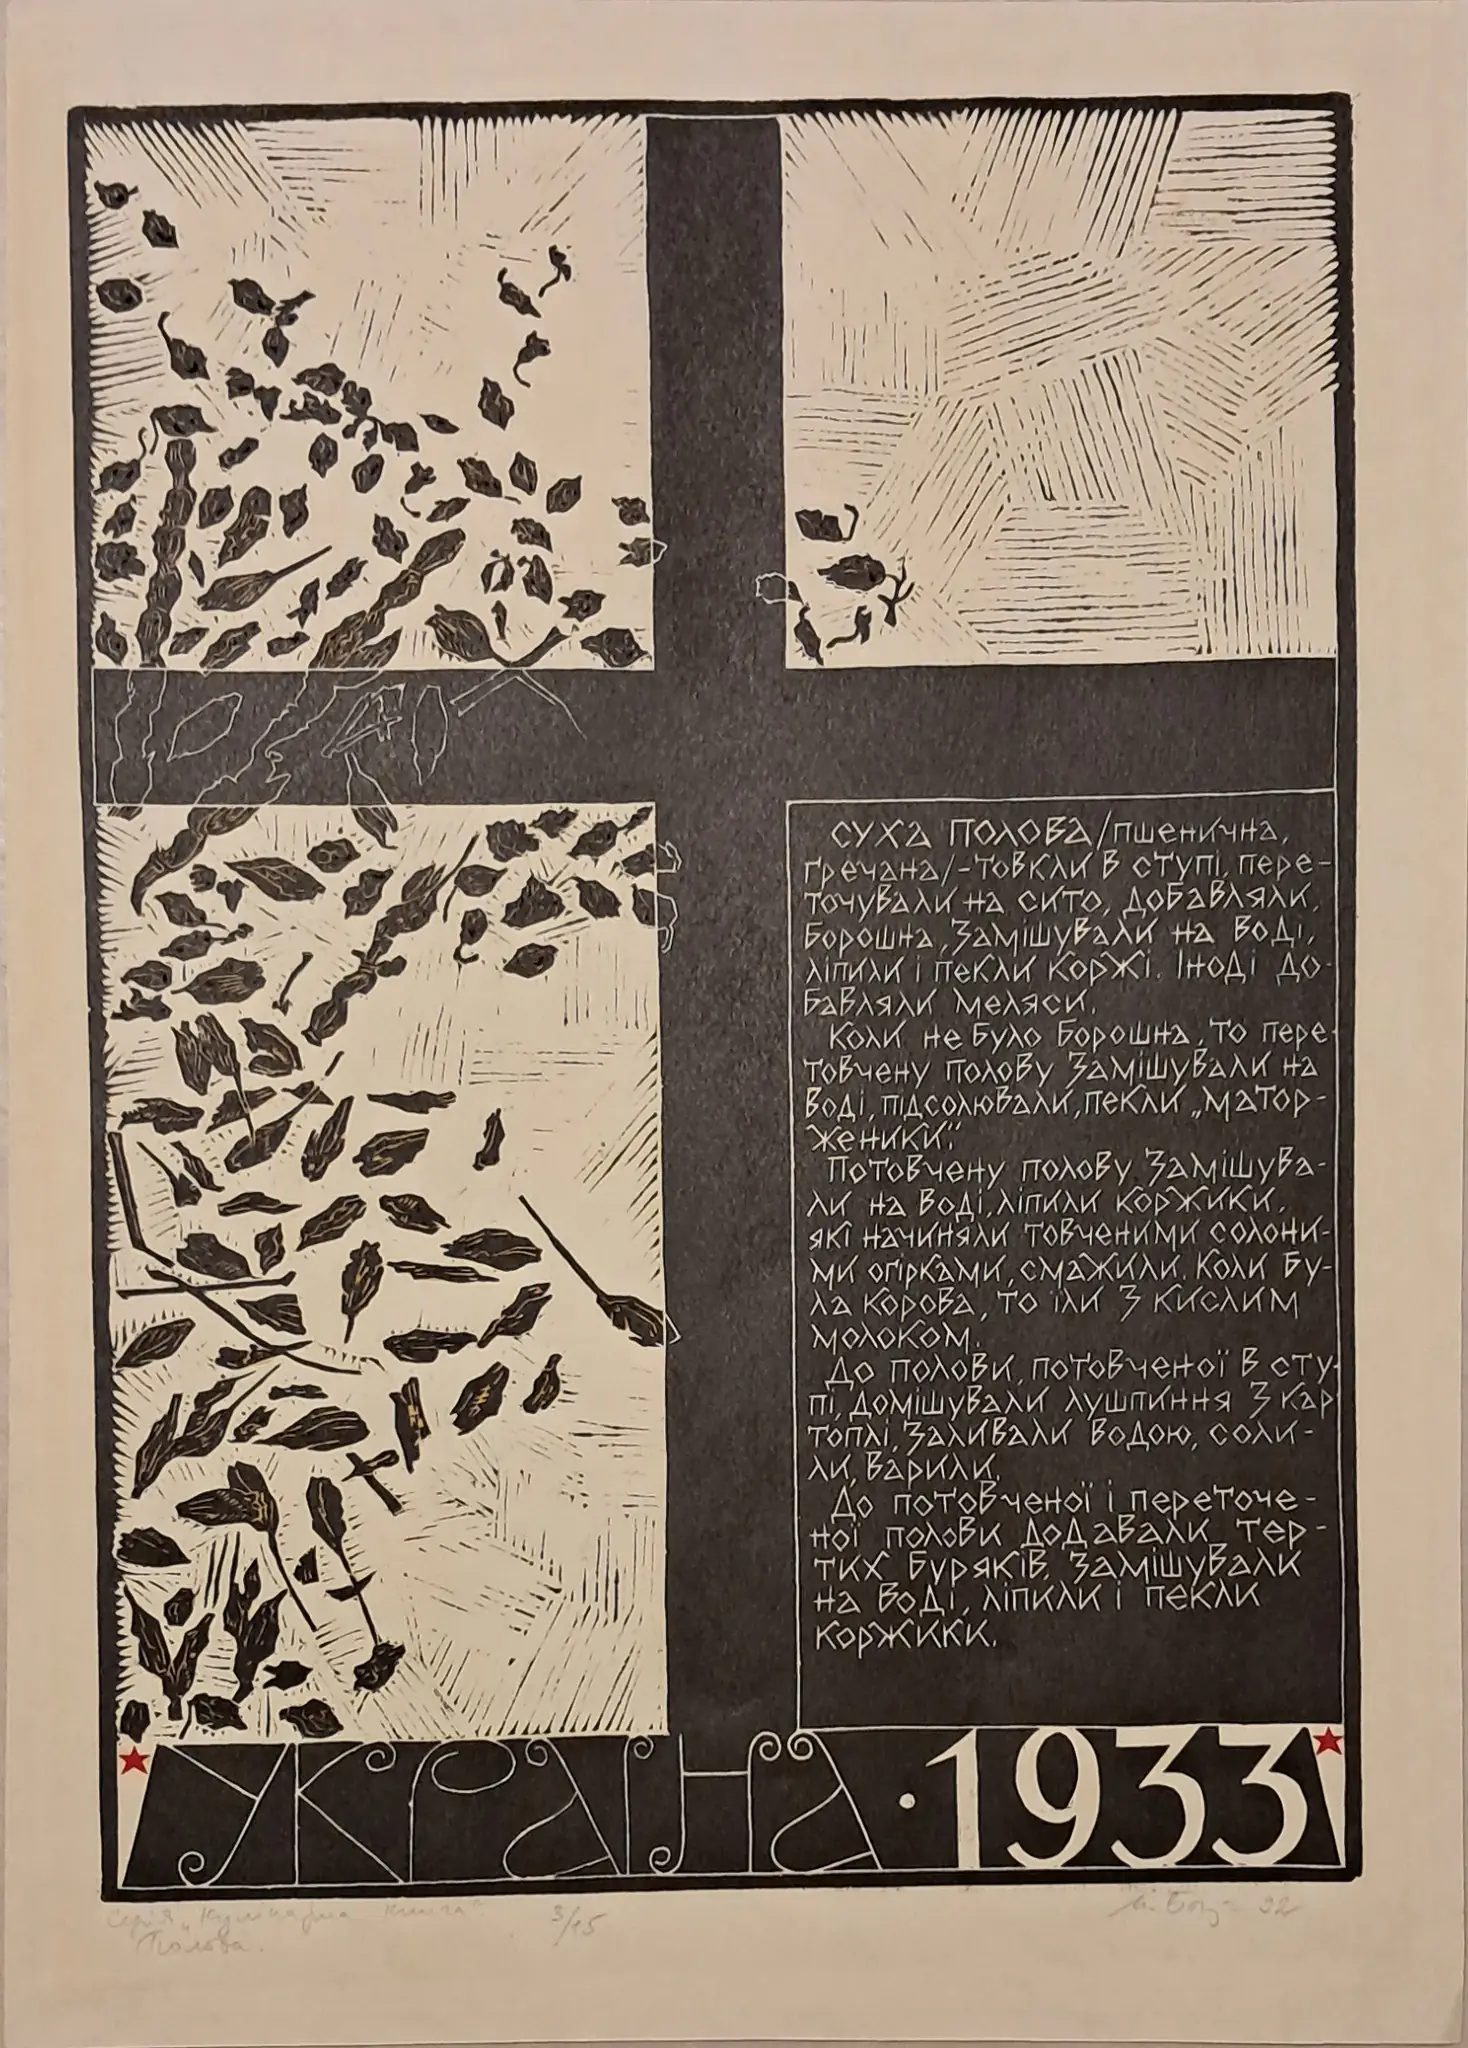 СУХА ПОЛОВА/ПШЕНИЧНА,
ГРЕЧАНА/-ТОВКЛИ В СТУПІ, ПЕРЕ-
ТОЧУВАЛИ НА СИТО, ДОБАВЛЯЛИ
БОРОШНА, ЗАМІШУВАЛИ НА ВОДІ,
ЛІПИЛИ І ПЕКЛИ КОРЖІ. ІНОДІ ДО-
БАВЛЯЛИ МЕЛЯСИ.
КОЛИ НЕ БУЛО БОРОШНА, ТО ПЕРЕ-
ТОВЧЕНУ ПОЛОВУ ЗАМІШУВАЛИ НА
ВОДІ, ПІДСОЛЮВАЛИ, ПЕКЛИ „МАТОР-
ЖЕНИКИ".
ПОТОВЧЕНУ ПОЛОВУ ЗАМІШУВА-
ЛИ НА ВОДІ, ЛІПИЛИ КОРЖИКИ,
ЯКІ НАЧИНЯЛИ ТОВЧЕНИМИ СОЛОНИ-
МИ ОГІРКАМИ, СМАЖИЛИ. КОЛИ БУ-
ЛА КОРОВА, ТО ЇЛИ З КИСЛИМ
МОЛОКОМ.
ДО ПОЛОВИ, ПОТОВЧЕНОЇ В СТУ-
ПІ, ДОМІШУВАЛИ ЛУШПИННЯ З КАР
ТОПЛІ, ЗАЛИВАЛИ ВОДОЮ, СОЛИ-
ЛИ, ВАРИЛИ.
ДО ПОТОВЧЕНОЇ І ПЕРЕТОЧЕ-
НОЇ ПОЛОВИ ДОДАВАЛИ ТЕР-
ТИХ БУРЯКІВ, ЗАМІШУВАЛИ
НА ВОДІ, ЛІПИЛИ І ПЕКЛИ
КОРЖИКИ.
УКРАЇНА · 1933
Серія „Кулінарна книга" 3/15 92
Полова.